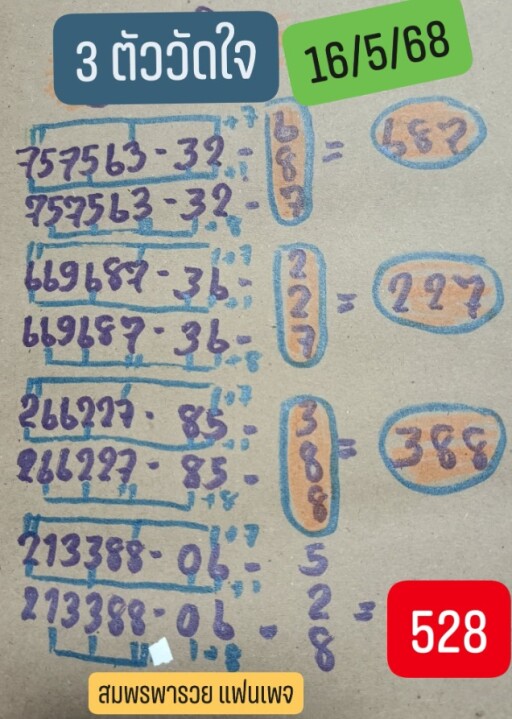 3 ตัววัดใจ
16/5/68
+7
757563-32- 6 8 7 = 687
757563-32-
+8
+7
669687-36- 2 2 7 = 227
669687-36-
+8
+7
266227- 85- 3 8 8 = 388
266227- 85-
+8
+7
213388-06- 5 2 8 = 528
213388-06-
+8
สมพรพารวย แฟนเพจ